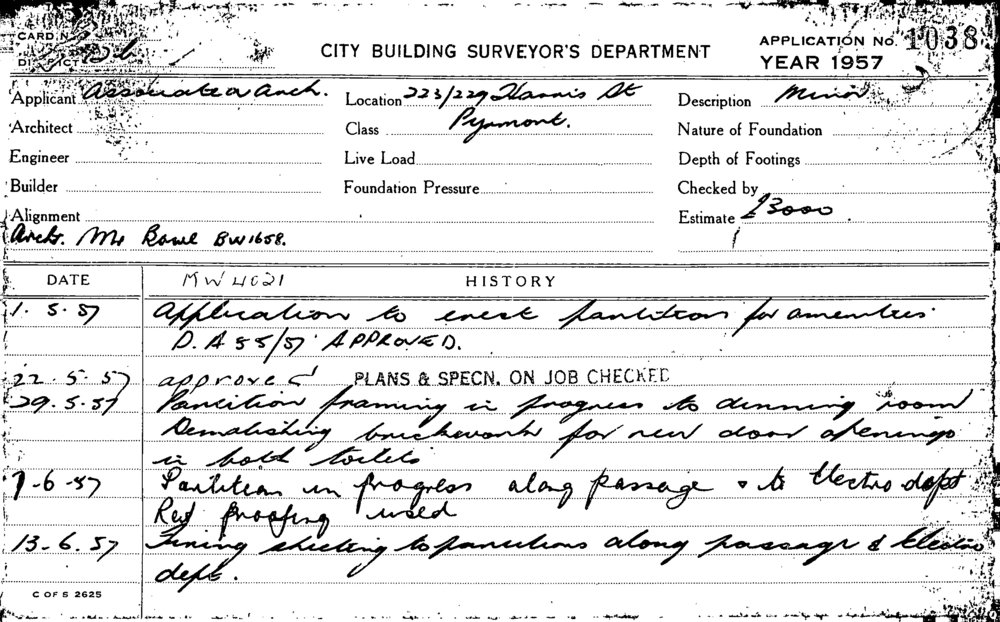 CARD No. CITY BUILDING SURVEYOR'S DEPARTMENT APPLICATION No. 1038
DISTRICT YEAR 1957
Applicant Associated Arch. Location 223/229 Harris St Description Minor
Architect Class Pyrmont. Nature of Foundation
Engineer Live Load Depth of Footings
Builder Foundation Pressure Checked by
Alignment Estimate £3000
Arch. Mr BW1658.
DATE MW 4021 HISTORY
1. 5. 57 Application to erect partitions for amenities
D. A 55/57 APPROVED.
22. 5. 57 approved PLANS & SPECN. ON JOB CHECKED
29. 5. 57 Partition framing in progress to dinning room
Demolishing brickwork for new door openings
in both toilets
7-6-57 Partition in progress along passage & to Electro dept
Red proofing used
13. 6. 57 Fining sheeting to partitions along passage & Electro
dept.
C OF S 2625